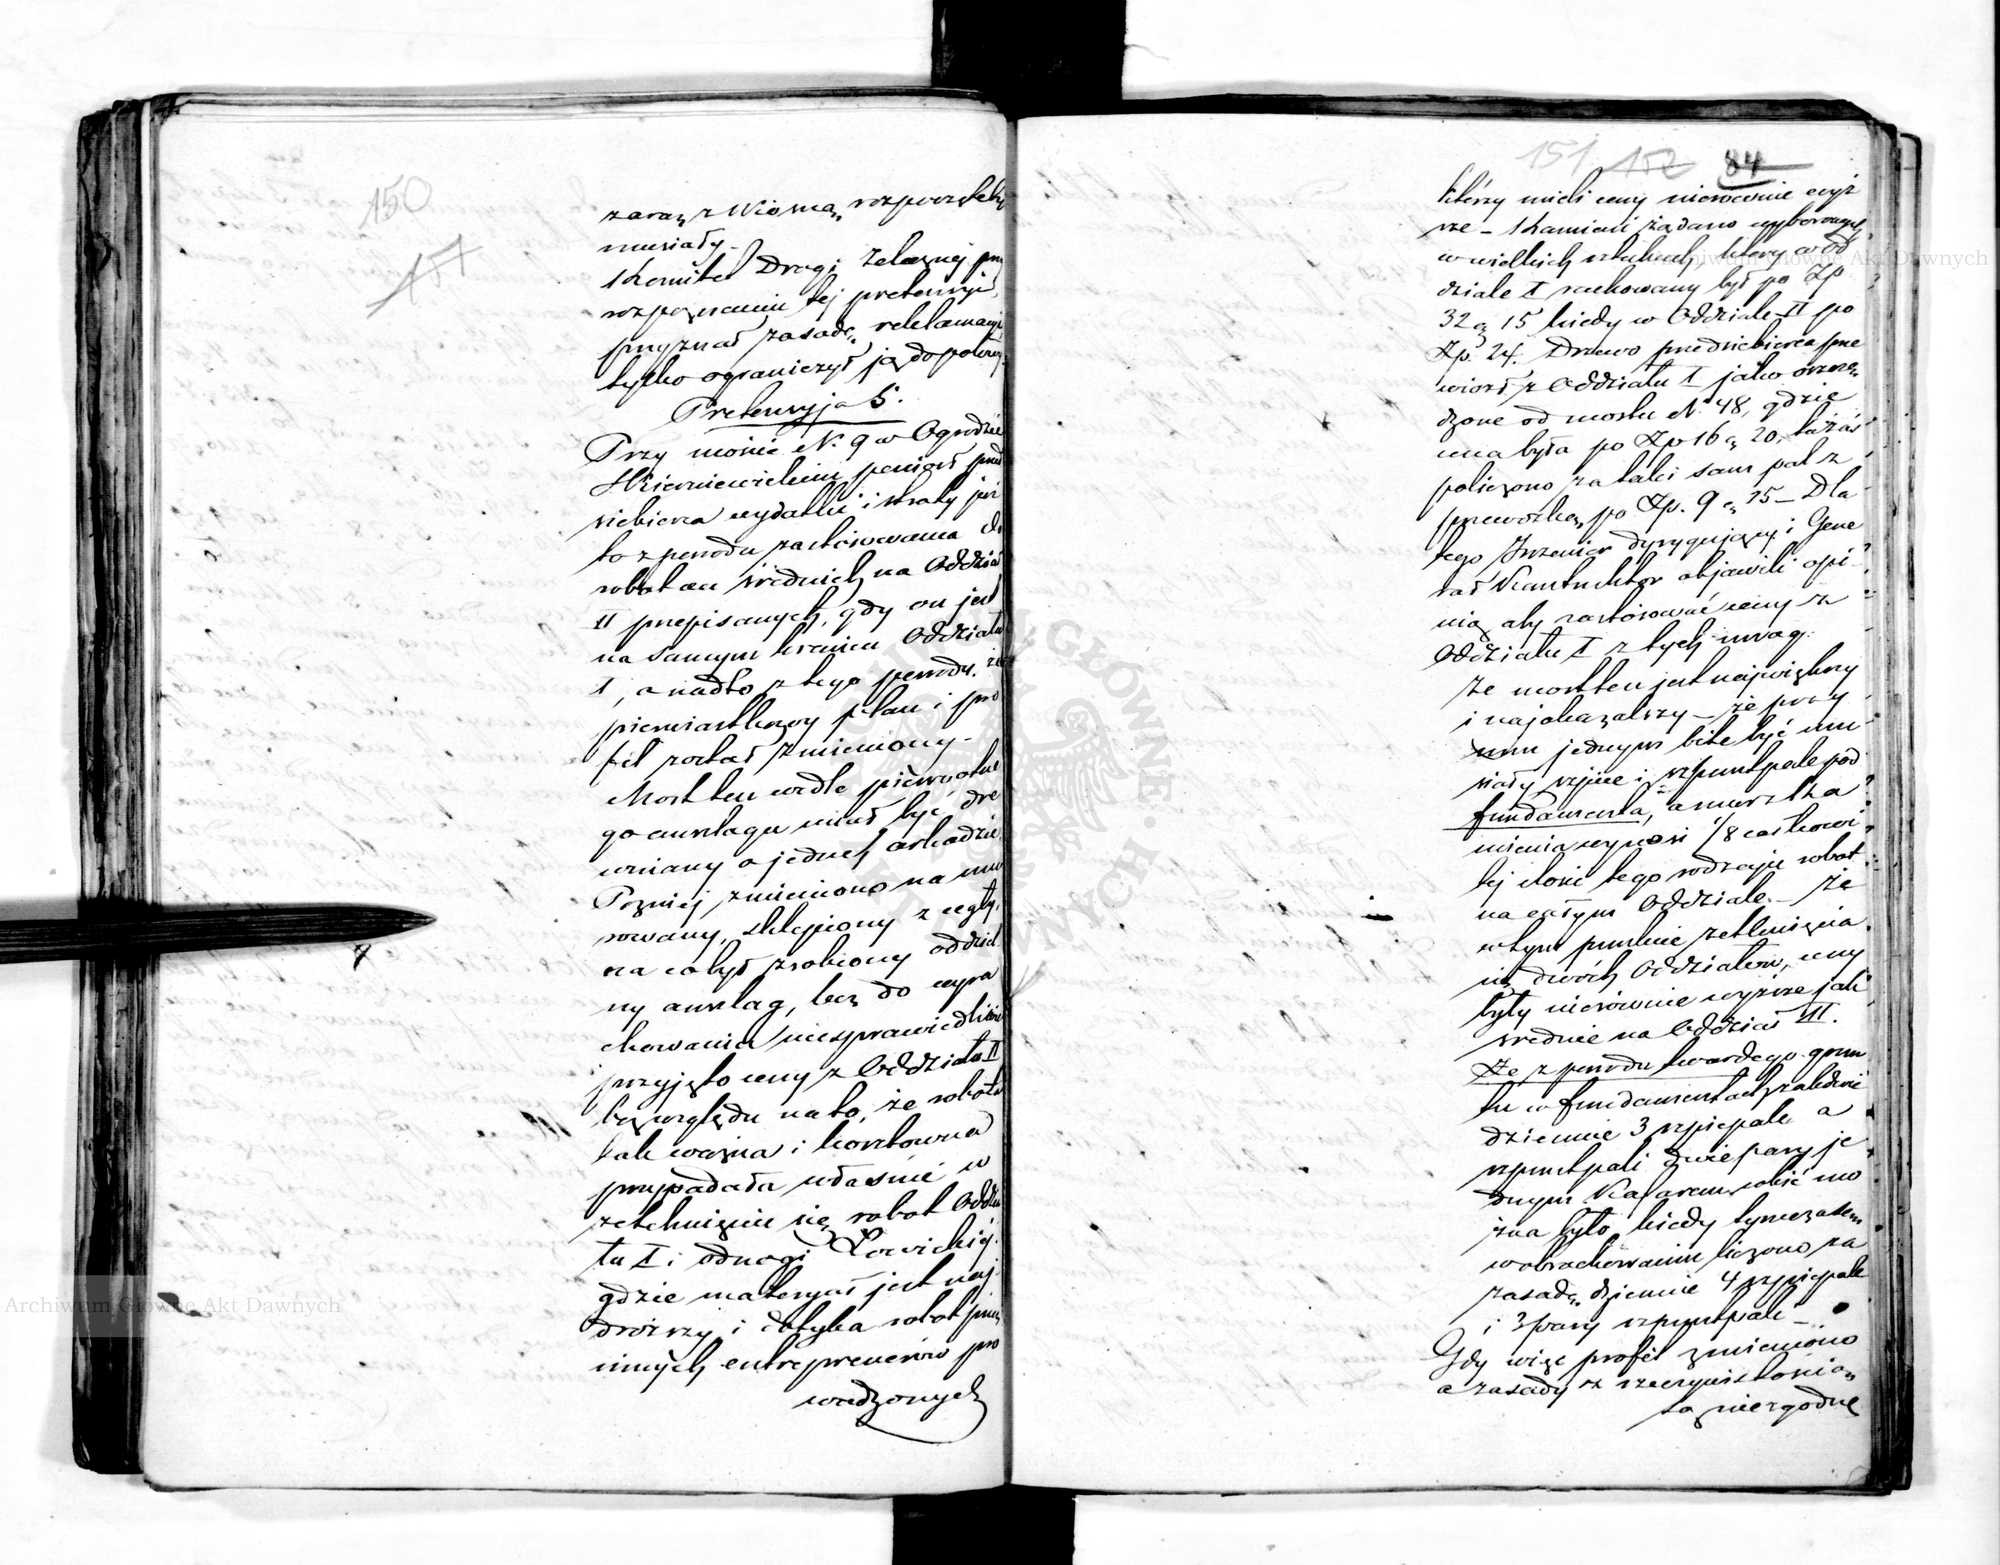 150
151
zaraz z Wiosną rozpoczęte być
musiały.
Komitet Drogi Żelaznej przy
rozpoznaniu tej pretensyi,
przyznał zasadę reklamacyi,
tylko ograniczył ją do połowy.
Pretensyja 5.
Przy moście N. 9 w Ogrodzie
Skierniewickim poniósł przed
siebierca wydatki i straty już
to z powodu zastósowania do
robót cen średnich na Oddział
II przepisanych, gdy on jest
na samym krańcu Oddziału
I, a nadto z tego powodu, że
pierwiastkowy plan i pro
fil został zmieniony.
Most ten wedle pierwotne
go anszlagu miał być dre
wniany o jednej arkadzie.
Pozniej zmieniono na mu
rowany, sklepiony z cegły,
na co był zrobiony oddziel
ny anszlag, lecz do wyra
chowania niesprawiedliwie
przyjęto ceny z Oddziału II
bez względu na to, że robota
tak ważna i kosztowna
przypadała właśnie w
zetknięciu się robot Oddzia
łu I i odnogi Łowickiéj
gdzie materyał jest naj
droższy i dotyka robot przez
innych entreprenerów pro
wadzonych
151 152 84
którzy mieli ceny nierównie wyż
sze – Kamień żądano wyborowy,
w wielkich sztukach, który w Od
dziale I rachowany był po Zp
32 g 15 kiedy w Oddziale II po
Zp. 24. Drzewo przedsiebierca prze
wiózł z Oddziału I jako oszczę
dzone od mostu N. 48, gdzie
cena była po Zp 16 g 20,
policzono za taki sam pal z
przewózką po Zp. 9 g 15 – Dla
tego Inzenier dyrygujący i Gene
rał Kontruktor objawili opi
nią aby zastósować ceny z
Oddziału I z tych uwag:
że most ten jest największy
i najokazalszy – że przy
nim jednym bite być mu
siały szpice i szpuntpale pod
fundamenta, a massa ka
mienia wynosi 1/8 całkowi
tej ilości tego rodzaju robot
na całym Oddziale. – Że
w tym punkcie zetknięcia
się dwóch Oddziałów, ceny
były nierównie wyższe jak
srednie na Oddział II.
Że z powodu twardego grun
tu w fundamentach zaledwie
dziennie 3 szpicpale a
szpuntpali dwie pary je
dnym Kafarem wbić mo
żna było, kiedy tymczasem
w obrachowaniu liczono za
zasadę dziennie 4 szpicpale
i 3 pary szpuntpali –
Gdy więc profil zmieniono
a zasady z rzeczywistością
są niezgodne
Archiwum Główne Akt Dawnych
Archiwum Główne Akt Dawnych